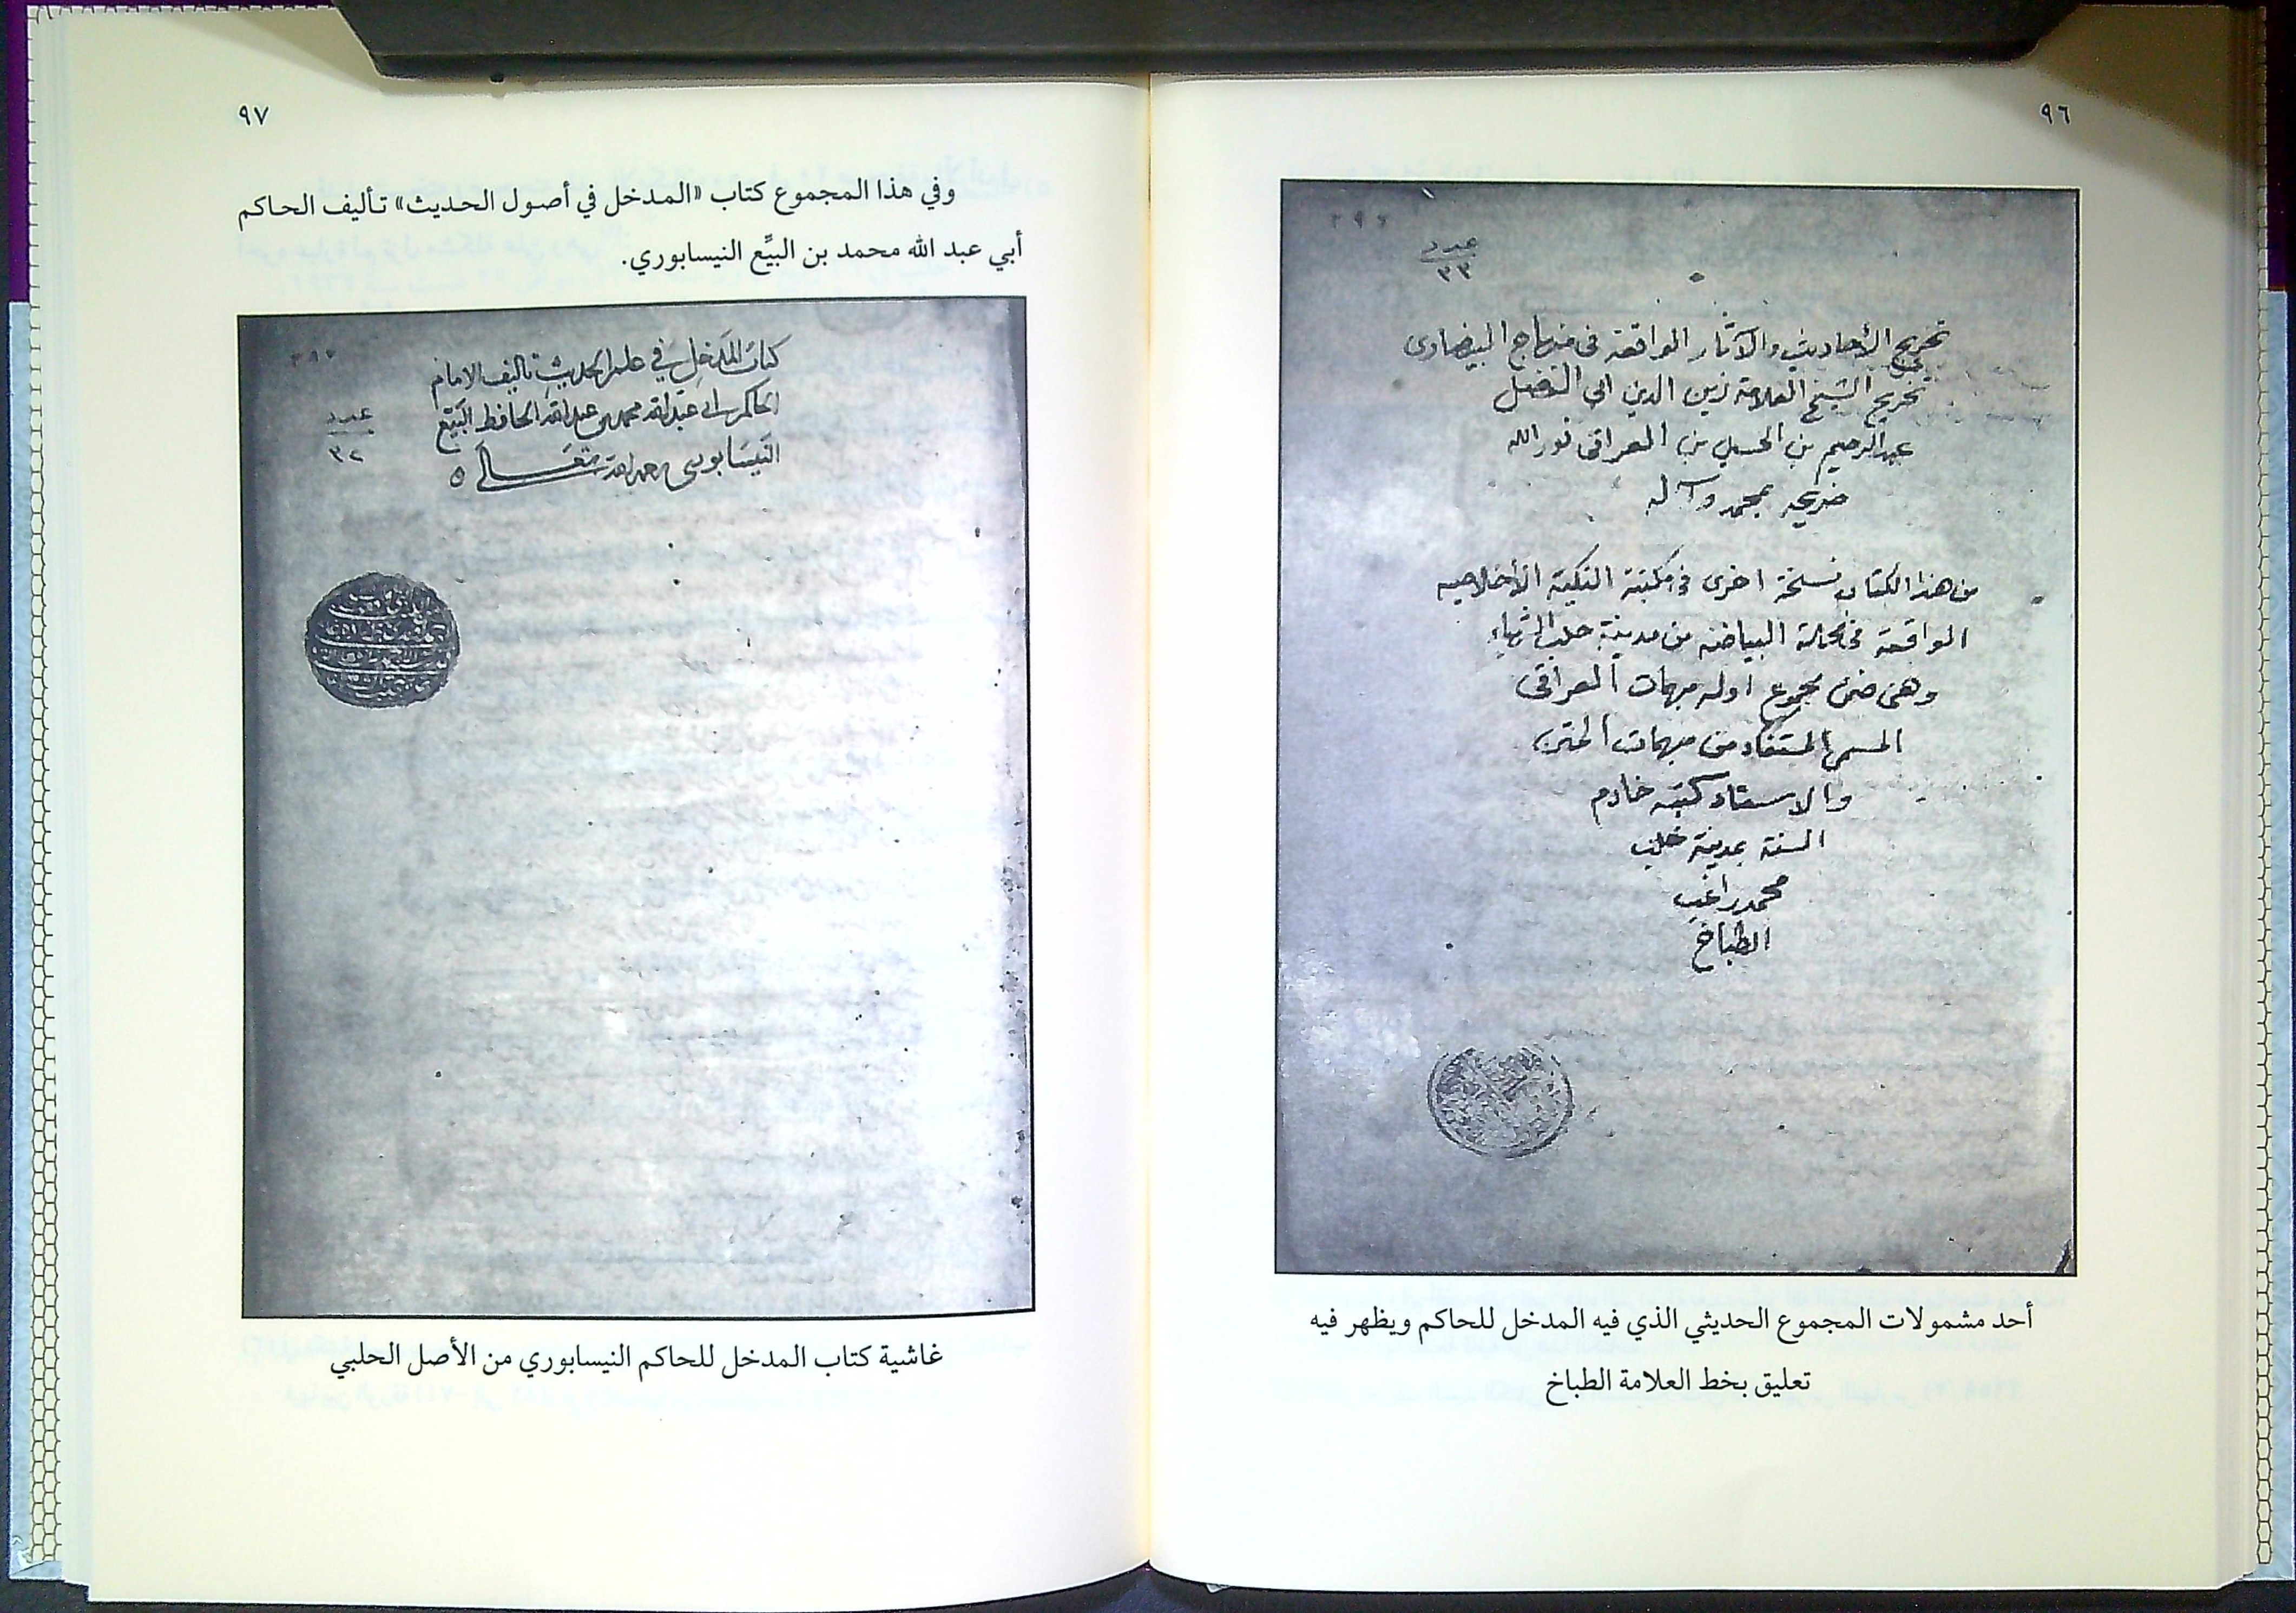 ٩٦
٢٩٧
عدد
٣٣
تخريج الأحاديث والآثار الواقعة في منهاج البيضاوى
تخريج الشيخ العلامة زين الدين ابي الفضل
عبد الرحيم بن الحسين بن العراقي نور الله
ضريحه بمحمد وآله
من هذا الكتاب نسخة اخرى في مكتبة التكية الأخلاصيه
الواقعة في محلة البياضه من مدينة حلب الشهباء
وهي ضمن مجموع اوله مبهمات العراقي
المسمى المستفاد من مبهمات المتن
والاسناد كتبه خادم
السنة بمدينة حلب
محمد راغب
الطباخ
أحد مشمولات المجموع الحديثي الذي فيه المدخل للحاكم ويظهر فيه
تعليق بخط العلامة الطباخ
٩٧
وفي هذا المجموع كتاب «المدخل في أصول الحديث» تأليف الحاكم
أبي عبد الله محمد بن البيِّع النيسابوري.
٢٩٧
كتاب المدخل في علم الحديث تاليف الامام
الحاكم ابي عبد الله محمد بن عبد الله الحافظ البيع
النيسابوري رحمه الله تعالى ٥
عدد
٣٢
غاشية كتاب المدخل للحاكم النيسابوري من الأصل الحلبي